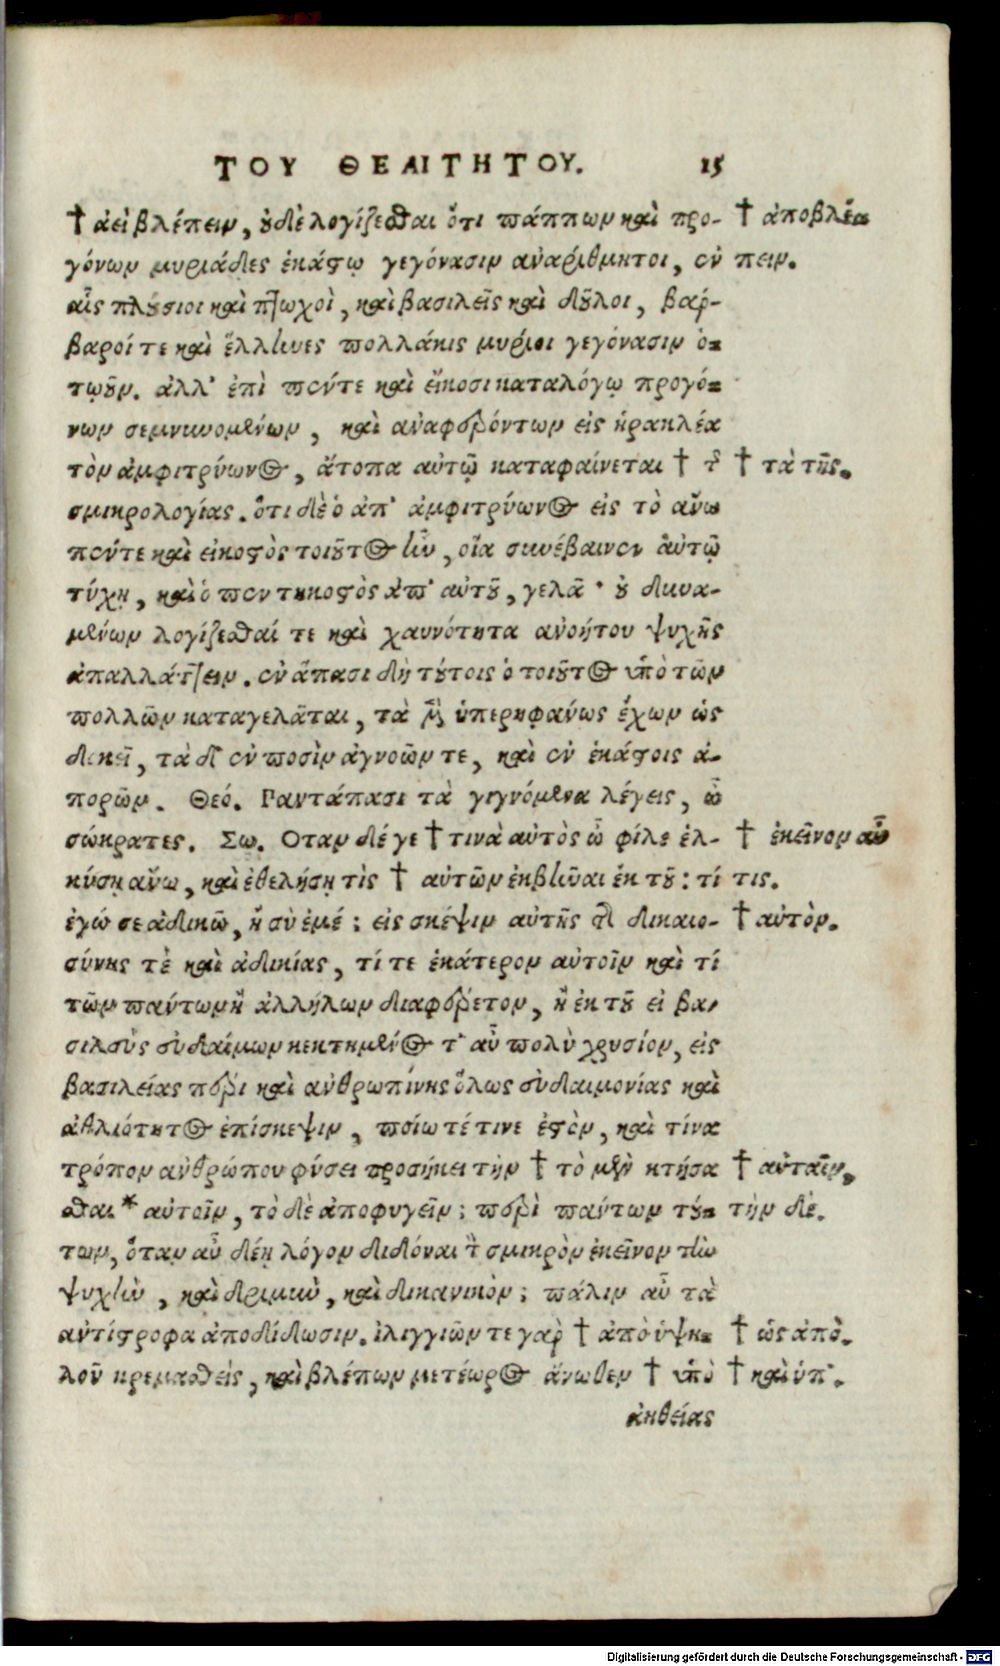 ΤΟΥ ΘΕΑΙΤΗΤΟΥ. 15
† ἀεὶ βλέπειν, οὐδὲ λογίζεσθαι ὅτι πάππων καὶ προ- † ἀποβλέ=
γόνων μυριάδες ἑκάστῳ γεγόνασιν ἀναρίθμητοι, ἐν πειν.
αἷς πλούσιοι καὶ πτωχοὶ, καὶ βασιλεῖς καὶ δοῦλοι, βάρ-
βαροί τε καὶ ἕλληνες πολλάκις μυρίοι γεγόνασιν ὁ=
τῳοῦν. ἀλλ' ἐπὶ πέντε καὶ εἴκοσι καταλόγῳ προγό=
νων σεμνυνομένων, καὶ ἀναφερόντων εἰς ἡρακλέα
τὸν ἀμφιτρύωνος, ἄτοπα αὐτῷ καταφαίνεται † τῆς † τὰ τῆς.
σμικρολογίας. ὅτι δὲ ὁ ἀπ' ἀμφιτρύωνος εἰς τὸ ἄνω
πέντε καὶ εἰκοστὸς τοιοῦτος ἦν, οἵα συνέβαινεν αὐτῷ
τύχη, καὶ ὁ πεντηκοστὸς ἀπ' αὐτοῦ, γελᾷ · οὐ δυνα-
μένων λογίζεσθαί τε καὶ χαυνότητα ἀνοήτου ψυχῆς
ἀπαλλάττειν. ἐν ἅπασι δὴ τούτοις ὁ τοιοῦτος ὑπὸ τῶν
πολλῶν καταγελᾶται, τὰ μὲν ὑπερηφάνως ἔχων ὡς
δοκεῖ, τὰ δ' ἐν ποσὶν ἀγνοῶν τε, καὶ ἐν ἑκάστοις ἀ-
πορῶν. Θεό. Γαντάπασι τὰ γιγνόμενα λέγεις, ὦ
σώκρατες. Σω. Οταν δέ γε † τινὰ αὐτὸς ὦ φίλε ἑλ- † ἐκεῖνον αὖ
κύσῃ ἄνω, καὶ ἐθελήσῃ τὶς † αὐτῶν ἐκβῆναι ἐκ τοῦ: τί τις.
ἐγώ σε ἀδικῶ, ἢ σὺ ἐμέ; εἰς σκέψιν αὐτῆς τῆς δικαιο- † αὐτὸν.
σύνης τὲ καὶ ἀδικίας, τί τε ἑκάτερον αὐτοῖν καὶ τί
τῶν πάντων ἢ ἀλλήλων διαφέρετον, ἢ ἐκ τοῦ εἰ βα-
σιλεὺς εὐδαίμων κεκτημένος τ' αὖ πολὺ χρυσίον, εἰς
βασιλείας πέρι καὶ ἀνθρωπίνης ὅλως εὐδαιμονίας καὶ
ἀθλιότητος ἐπίσκεψιν, ποίω τέ τινε ἐστὸν, καὶ τίνα
τρόπον ἀνθρώπου φύσει προσήκει τὴν † τὸ μὲν κτήσα † αὐταῖν,
σθαι * αὐτοῖν, τὸ δὲ ἀποφυγεῖν; περὶ πάντων τού= τὴν δὲ.
των, ὅταν αὖ δέῃ λόγον διδόναι τὸ σμικρὸν ἐκεῖνον τὴν
ψυχὴν, καὶ δριμὺν, καὶ δικανικὸν; πάλιν αὖ τὰ
ἀντίστροφα ἀποδίδωσιν. ἰλιγγιῶν τε γὰρ † ἀπὸ ὑψη= † ὡς ἀπὸ.
λοῦ κρεμασθεὶς, καὶ βλέπων μετέωρος ἄνωθεν † ὑπὸ † καὶ ὑπ'.
ἀηθείας
Digitalisierung gefördert durch die Deutsche Forschungsgemeinschaft - DFG